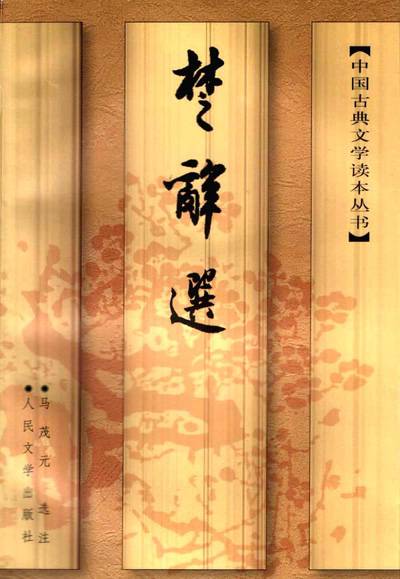 【中国古典文学读本丛书】
楚辭選
●马茂元选注
●人民文学出版社